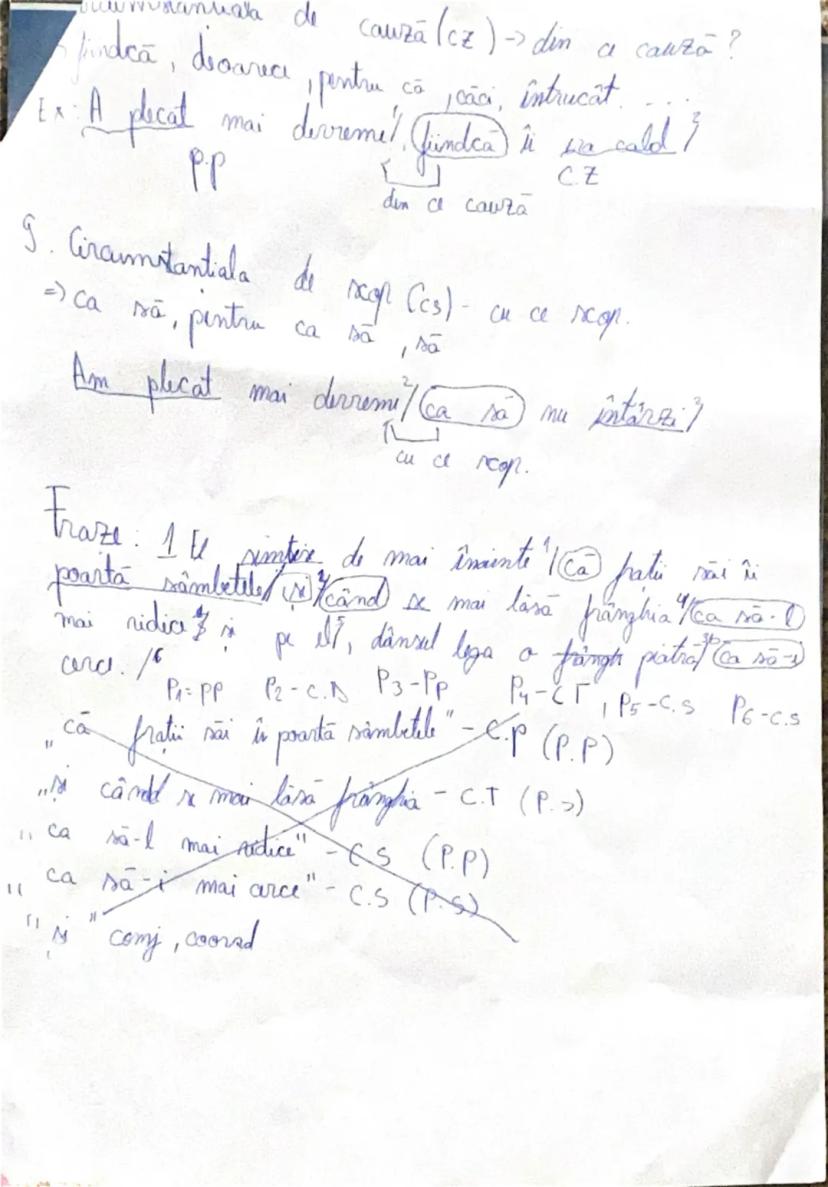 de cauză (CZ) → din ce cauză?
fiindcă, deoarece, pentru că, căci, întrucât. ...
Ex: A plecat mai devreme¹/, fiindcă îi era cald/²
P.P C.Z
din ce cauză
9. Circumstanțiala de scop (CS) - cu ce scop.
=> ca să, pentru ca să, să
Am plecat mai devreme²/ ca să nu întârzi/²
cu ce scop.
Fraze: 1 El simțise de mai înainte ¹/ că frații săi îi
poartă sâmbetele/ și ³/ când se mai lăsă frânghia ⁴/ ca să-l
mai ridice și pe el, dânsul lega o piatră/ ca să-i
cerce. /⁶
P1=PP P2-C.D P3-PP P4-CT, P5-C.S P6-C.S
"că frații săi îi poartă sâmbetele" - C.P (P.P)
"și când se mai lăsă frânghia - C.T (P.S)
"ca să-l mai ridice" - C.S (P.P)
"ca să-i mai cerce" - C.S (P.S)
"și" conj, coord